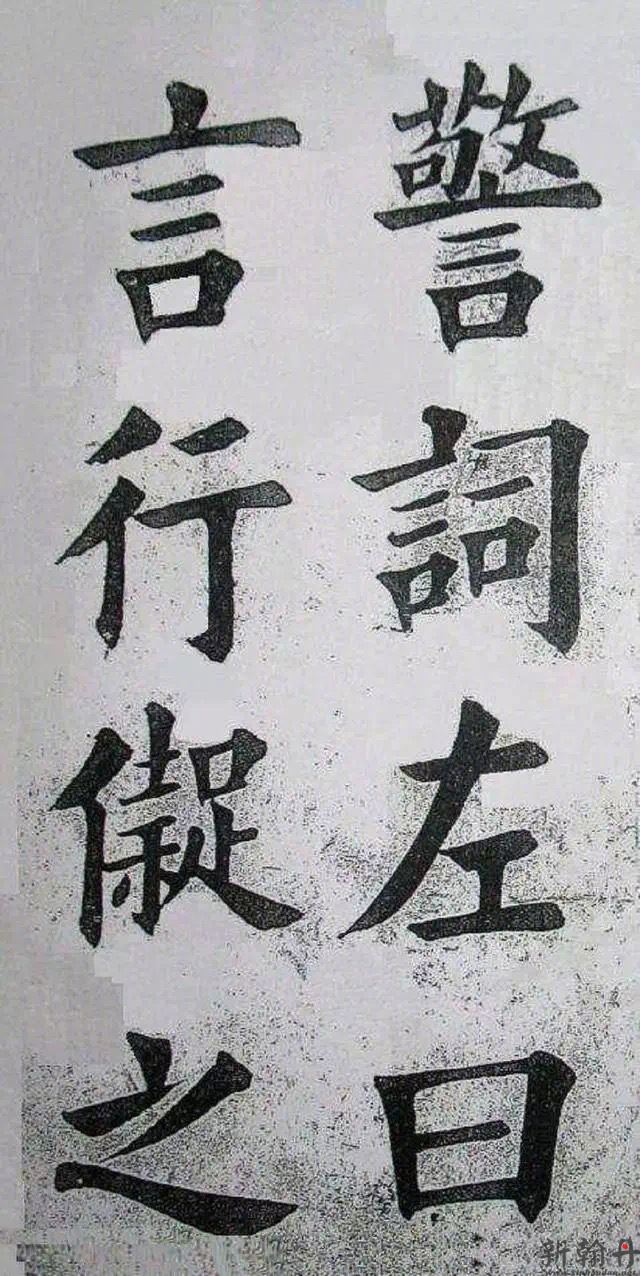 警詞左曰
言行儗之
新翰丹